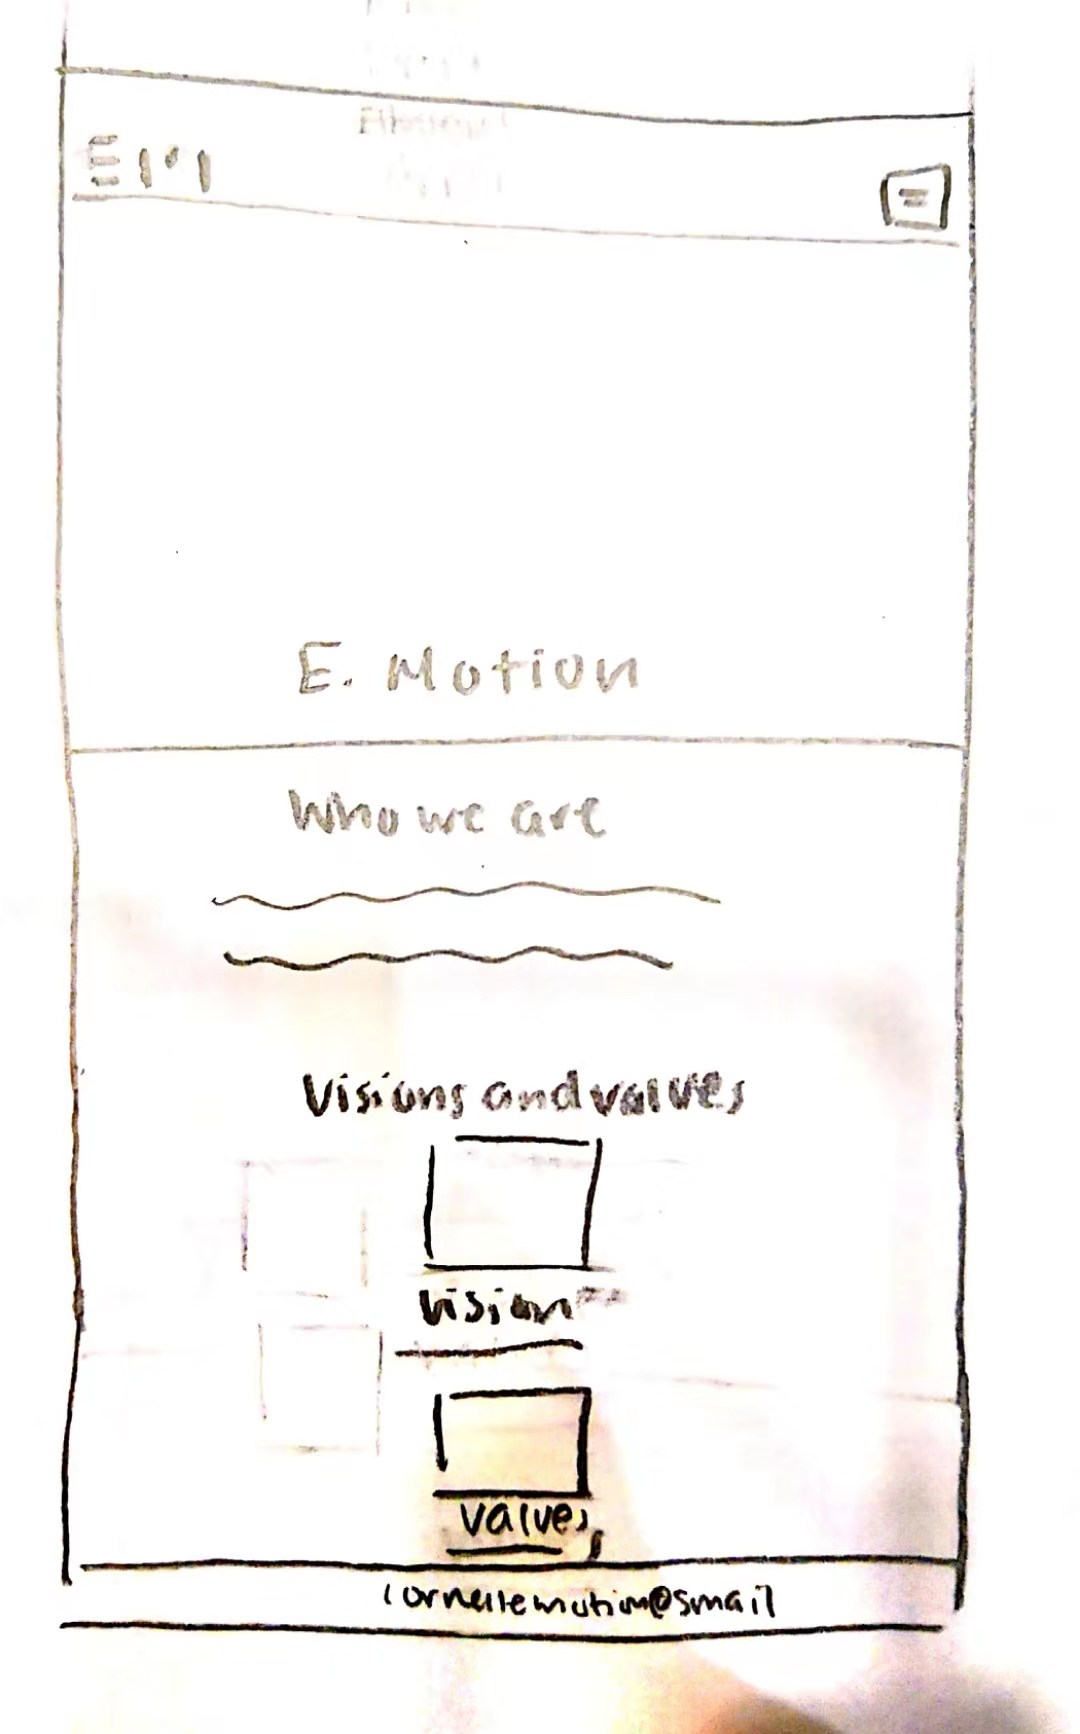 EM
E. Motion
Who we are
Visions and values
Vision
values
cornellemotion@gmail